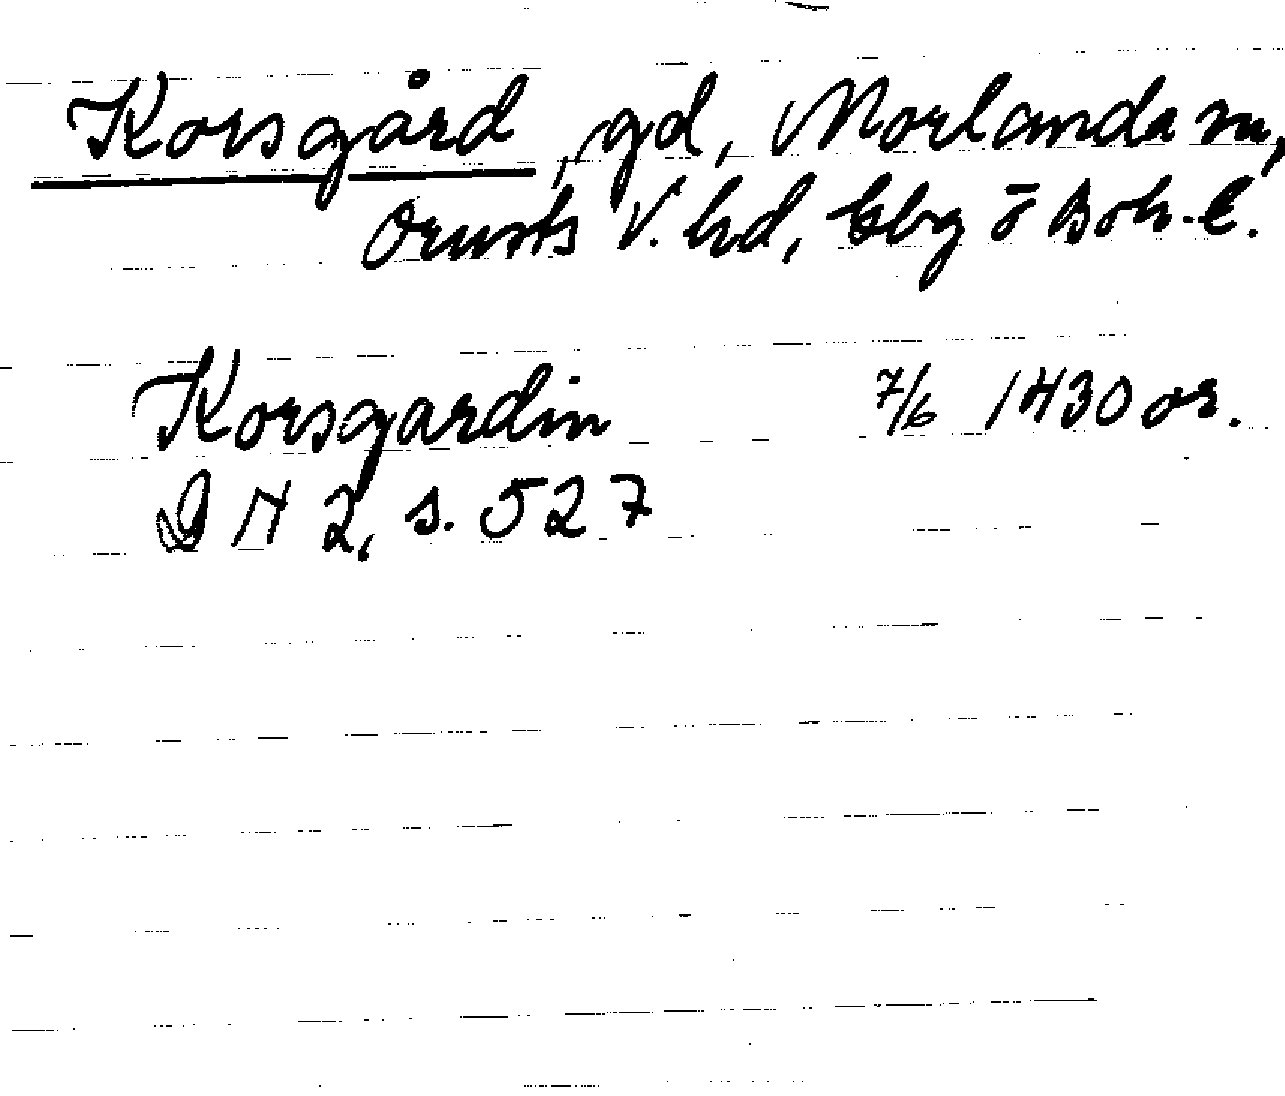 Korsgård, gd, Morlanda sn,
Orusts V. hd, Gbg o Boh-l.
Korsgardin 7/6 1430 or.
DN 2, s. 527